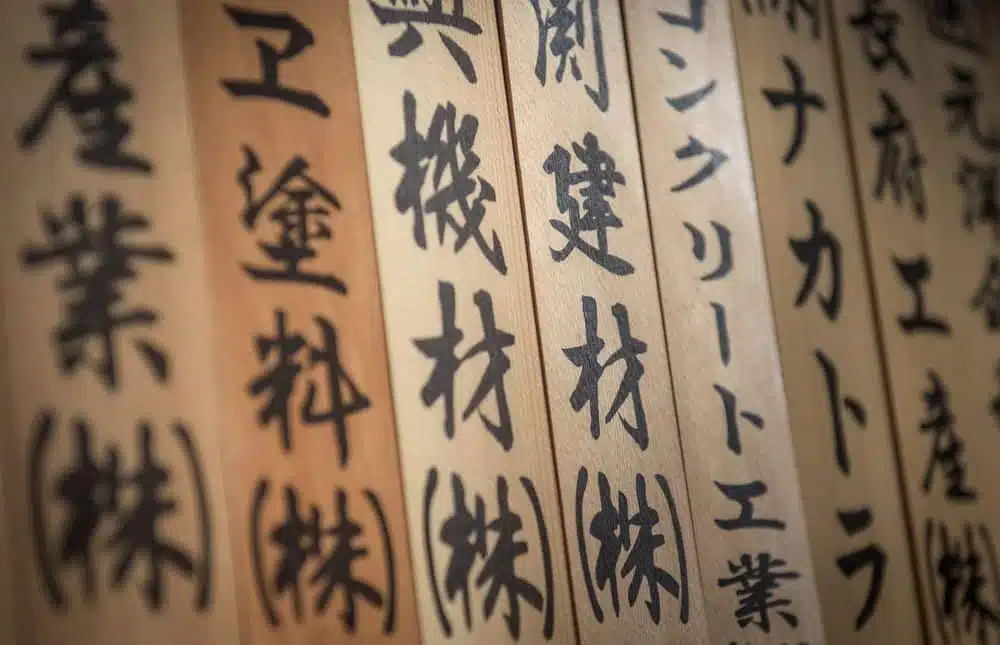 元
長府工産(株)
ナカトラ
コンクリート工業
建材(株)
興機材(株)
ヱ塗料(株)
産業(株)